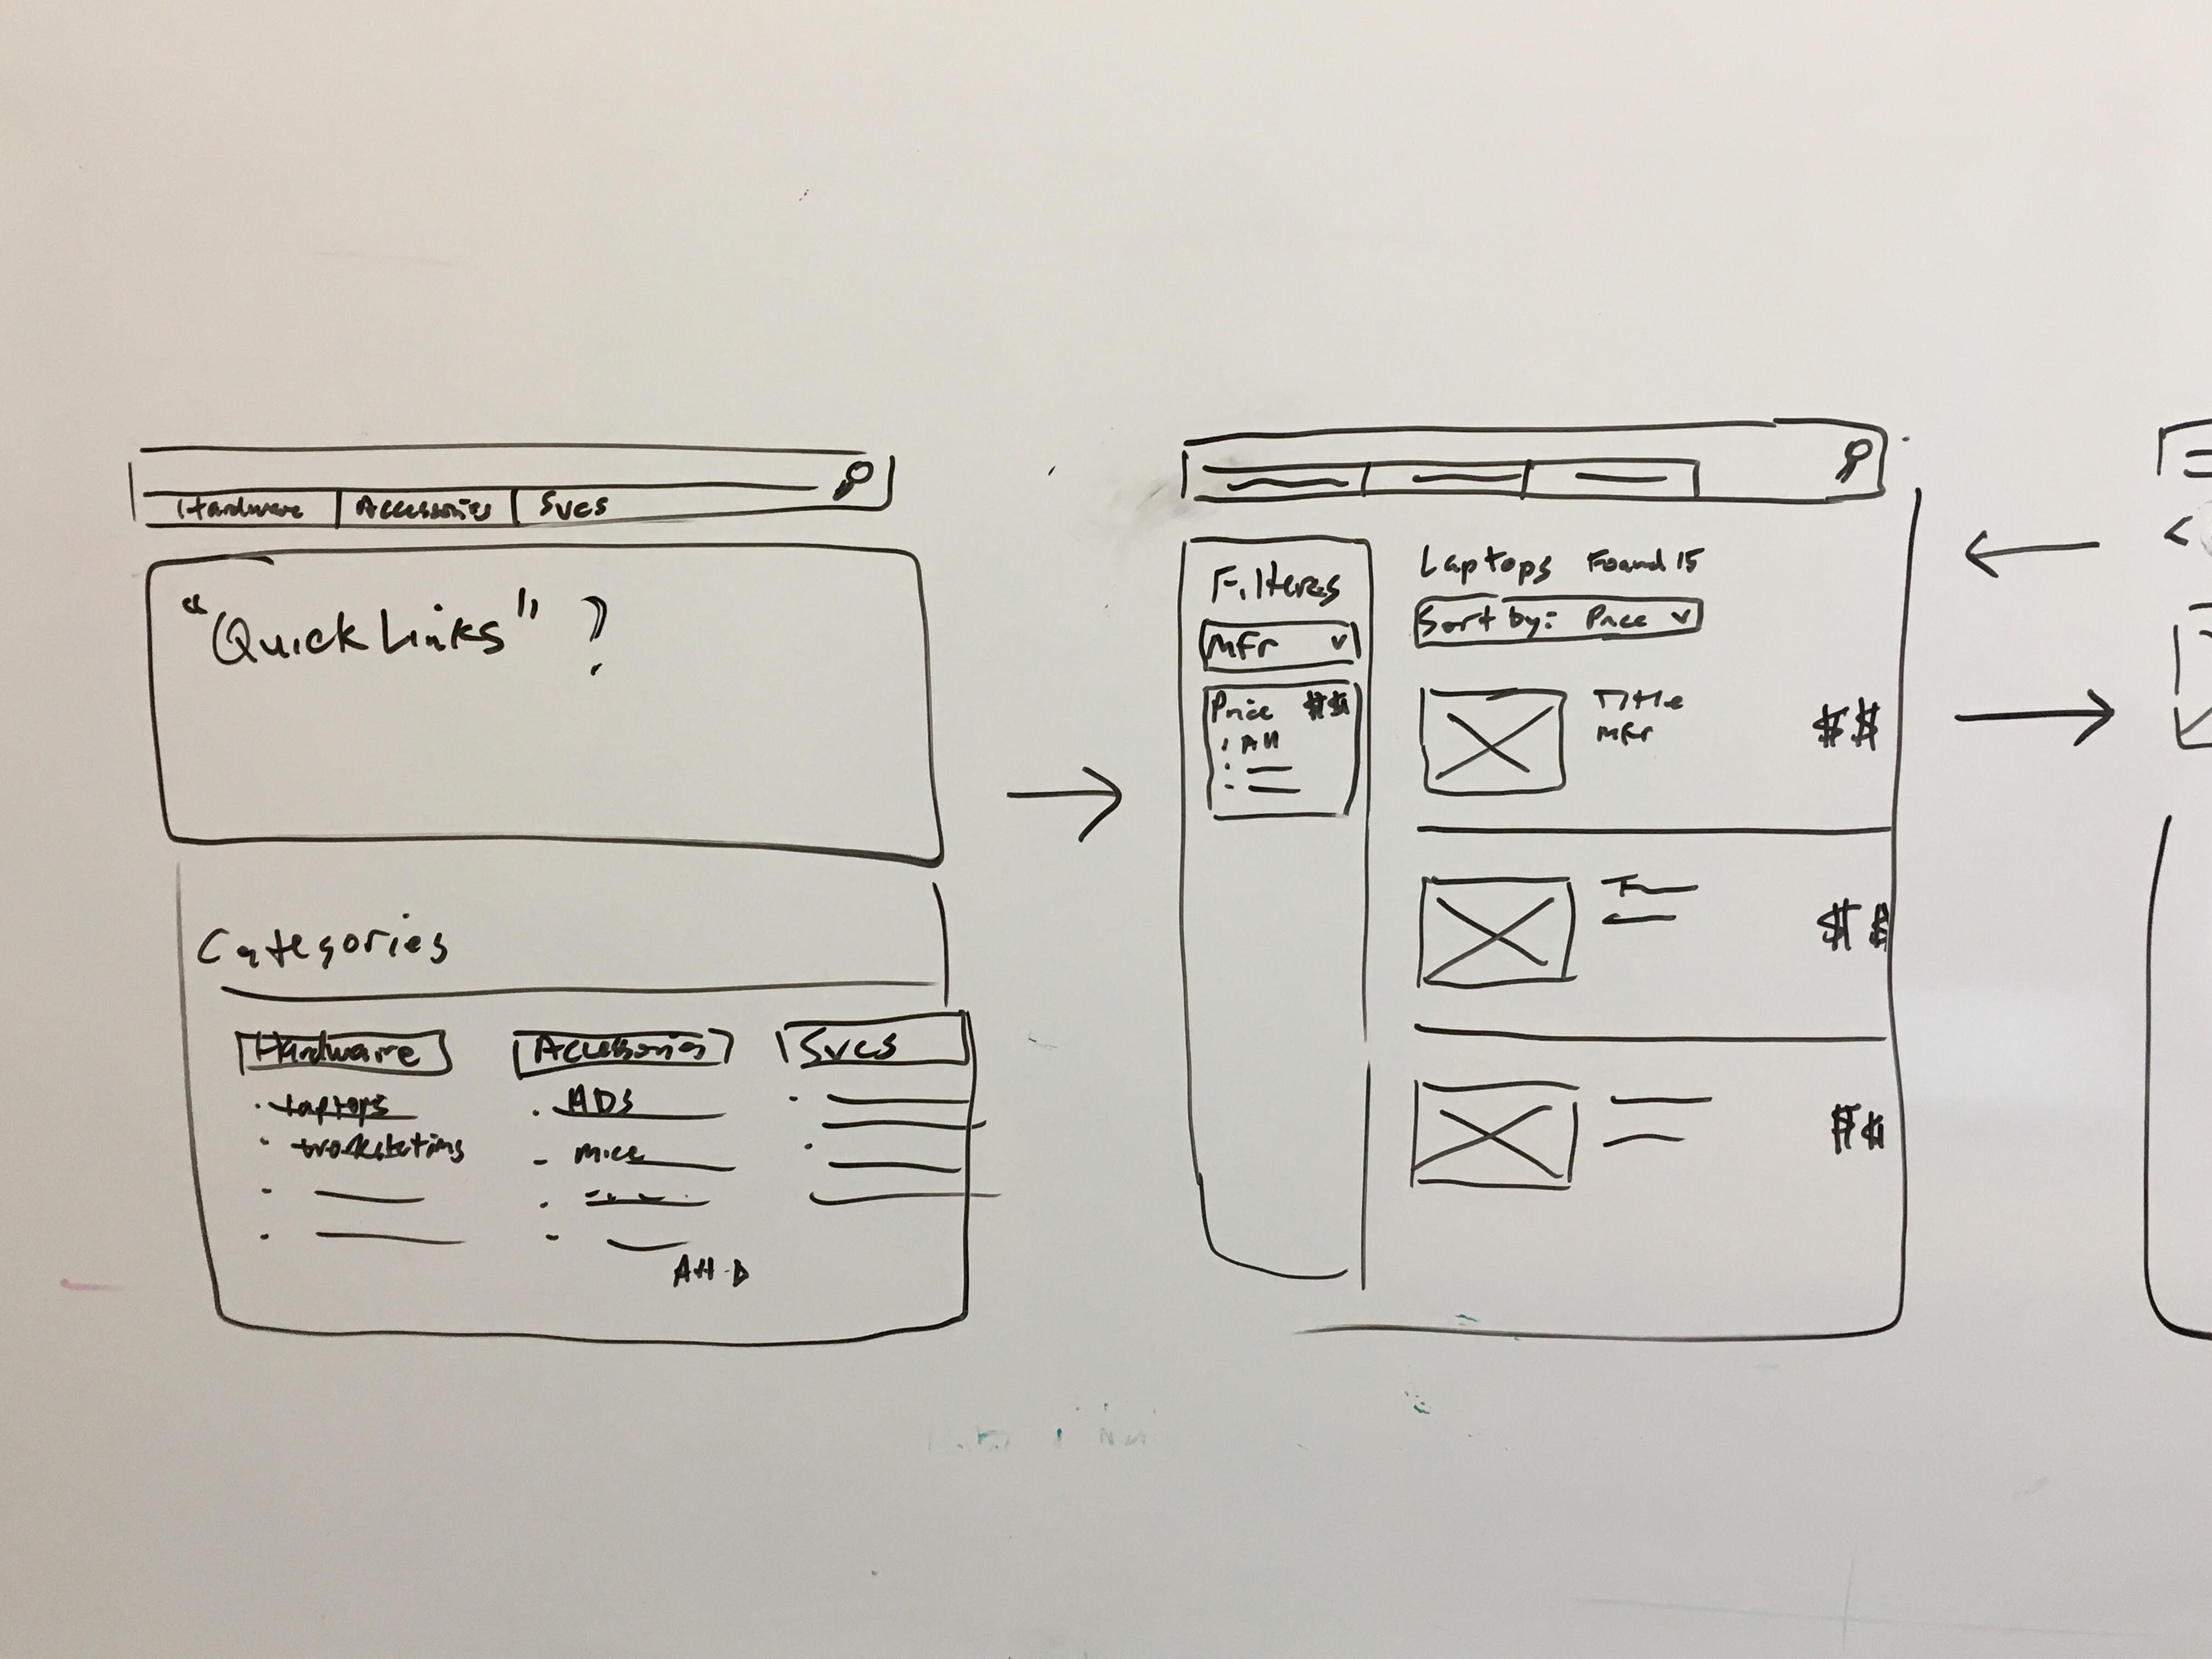 Hardware Accessories Svcs
"Quick Links" ?
Categories
Hardware Accessories Svcs
Laptops
ADS
mice
All
Filters
MFr v
Price $$
All
Laptops Found 15
Sort by: Price v
Title
MFr
$$
$$
$$